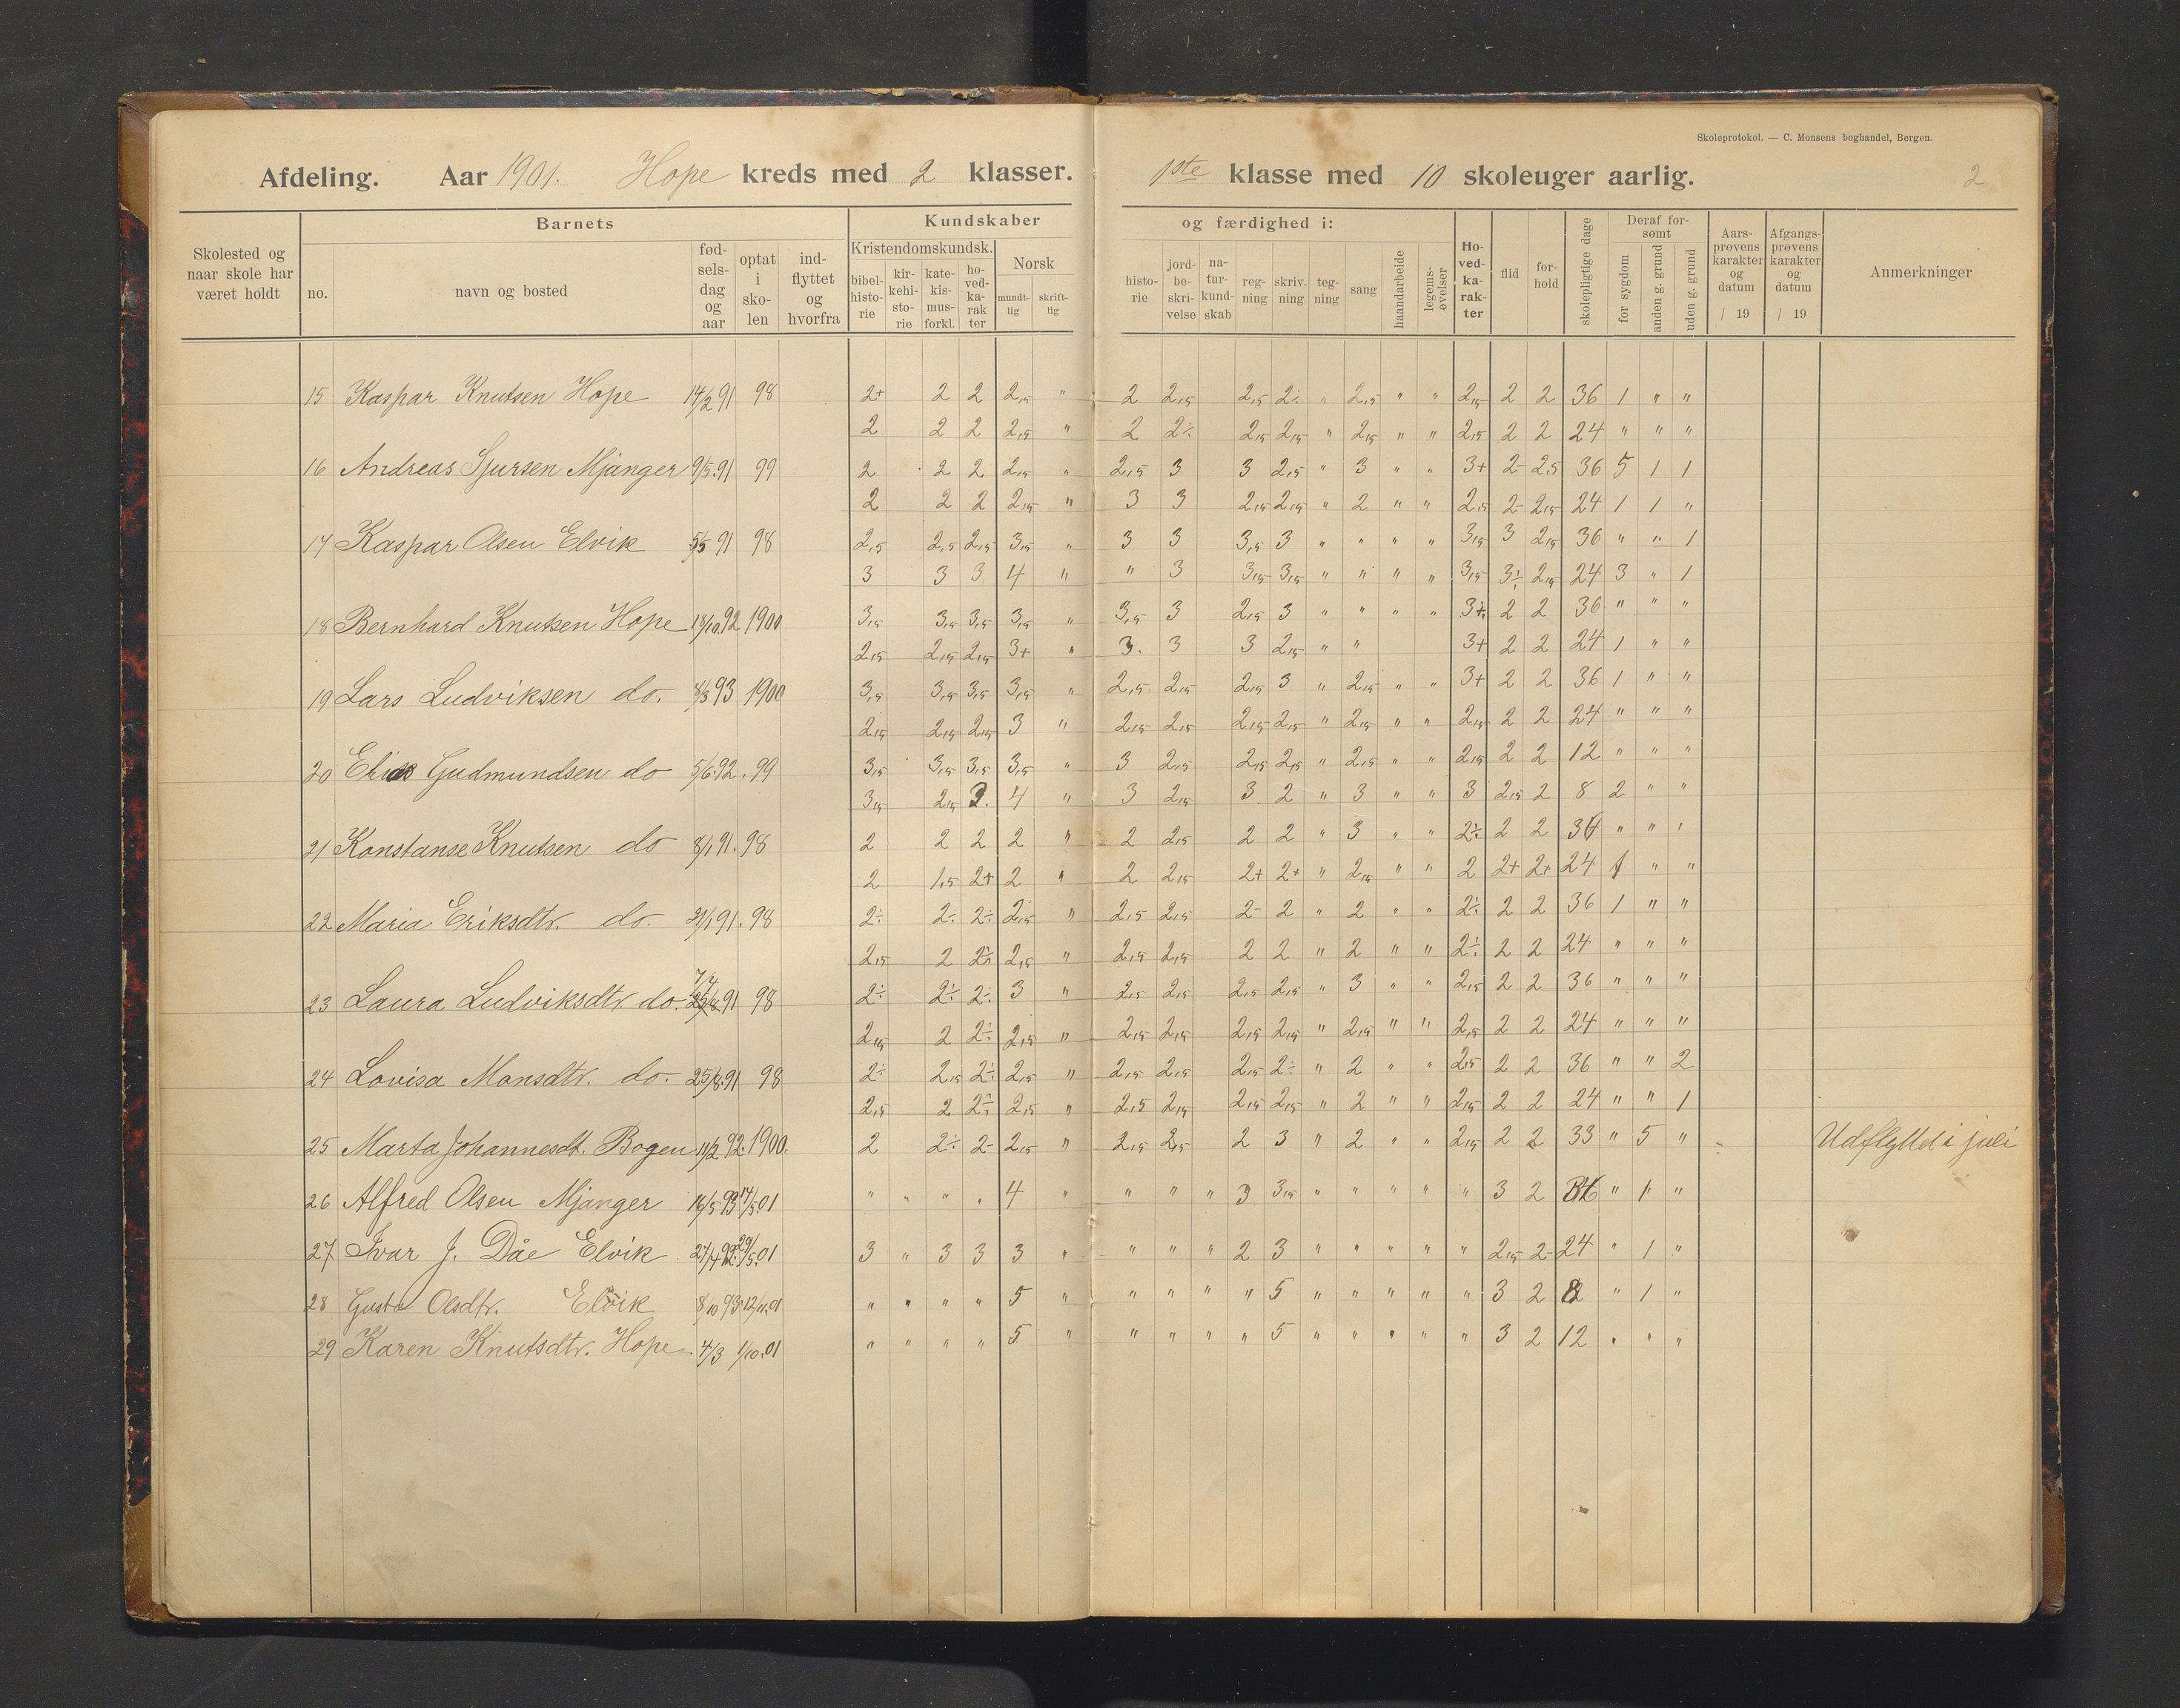 Skoleprotokol. — C. Monsens boghandel, Bergen.
Afdeling. Aar 1901. Hope kreds med 2 klasser. 1ste klasse med 10 skoleuger aarlig. 2
Skolested og naar skole har været holdt
Barnets
no. navn og bosted fødselsdag og aar optat i skolen indflyttet og hvorfra
Kundskaber og færdighed i:
Kristendomskundsk. bibelhistorie kirkehistorie katekismusforkl. hovedkarakter
Norsk mundtlig skriftlig
historie jordbeskrivelse naturkundskab regning skrivning tegning sang haandarbeide legemsøvelser
Hovedkarakter flid forhold skolepligtige dage
Deraf forsømt for sygdom anden g. grund uden g. grund
Aarsprøvens karakter og datum / 19
Afgangsprøvens karakter og datum / 19
Anmerkninger
15 Kaspar Knutsen Hope 14/2 91 98 2+ 2 2 2,5 " 2 2,5 2,5 2÷ " 2,5 " " 2,5 2 2 36 1 " "
2 2 2 2,5 " 2 2÷ 2,5 2,5 " 2,5 " " 2,5 2 2 24 " " "
16 Andreas Sjursen Mjånger 9/5.91 99 2 2 2 2,5 " 2,5 3 3 2,5 " 3 " " 3+ 2- 2,5 36 5 1 1
2 2 2 2,5 " 3 3 2,5 2,5 " 2 " " 2,5 2- 2,5 24 1 1 "
17 Kaspar Olsen Elvik 5/5 91 98 2,5 2,5 2,5 3,5 " 3 3 3,5 3 " " " " 3,5 3 2,5 36 " " 1
3 3 3 4 " " 3 3,5 3,5 " " " " 3,5 3÷ 2,5 24 3 " 1
18 Bernhard Knutsen Hope 18/10.92 1900 3,5 3,5 3,5 3,5 " 3,5 3 2,5 3 " " " " 3+ 2 2 36 " " "
2,5 2,5 2,5 3+ " 3. 3 3 2,5 " " 3+ 2 2 24 1 " "
19 Lars Ludviksen do. 8/3 93 1900 3,5 3,5 3,5 3,5 " 2,5 2,5 2,5 3 " 2,5 " " 3+ 2 2 36 1 " "
2,5 2,5 2,5 3 " 2,5 2,5 2,5 2,5 " 2,5 " " 2,5 2 2 24 " " "
20 Gudmundsen do 5/6.92. 99 3,5 3,5 3,5 3,5 " 3 2,5 2,5 2,5 " 2,5 " " 2,5 2 2 12 " " "
3,5 2,5 3. 4 " 3 2,5 3 2 " 3 " " 3 2,5 2 8 2 " "
21 Konstanse Knutsen do 8/1 91. 98 2 2 2 2 " 2 2,5 2 2 " 3 " " 2÷ 2 2 36 " " "
2 1,5 2+ 2 " 2 2,5 2+ 2+ " 2,5 " " 2 2+ 2+ 24 1 " "
22 Maria Eriksdtr. do. 21/1 91. 98 2÷ 2÷ 2÷ 2,5 " 2,5 2,5 2- 2 " 2 " " 2÷ 2 2 36 1 " "
2,5 2 2÷ 2,5 " 2,5 2,5 2 2 " 2 " " 2÷ 2 2 24 " " "
7/4
23 Laura Ludviksdtr. do. 25/8 91 98 2÷ 2÷ 2÷ 3 " 2,5 2,5 2,5 2,5 " 3 " " 2,5 2 2 36 " " "
2,5 2 2÷ 2,5 " 2,5 2,5 2,5 2,5 " 2,5 " " 2,5 2 2 24 " " "
24 Lovisa Monsdtr. do. 25/8.91 98 2÷ 2,5 2÷ 2,5 " 2,5 2,5 2,5 2÷ " 2 " " 2,5 2 2 36 " " 2
2,5 2 2÷ 2,5 " 2,5 2,5 2,5 2,5 " 2 " " 2,5 2 2 24 " " 1
25 Marta Johannesdt. Bogen 11/2 92. 1900. 2 2÷ 2- 2,5 " 2,5 2,5 2 3 " 2 " " 2,5 2 2 33 " 5 " Udflyttet i juli
26 Alfred Olsen Mjanger 16/5 93 14/5.01 " " " " 4 " " " " 3 3,5 " " " " " 3 2 " 1 "
27 Ivar J. Dåe Elvik. 27/4 92. 29/5.01 3 " 3 3 3 " " " " 2 3 " " " " " 2,5 2- 24 " 1 "
28 Gusta Olsdtr. Elvik 8/10 93. 12/11.01 " " " " 5 " " " " " 5 " " " " " 3 2 " 1 "
29 Karen Knutsdtr. Hope 4/3 1/10.01 " " " " 5 " " " " " 5 " " " " " 3 2 12 " " "